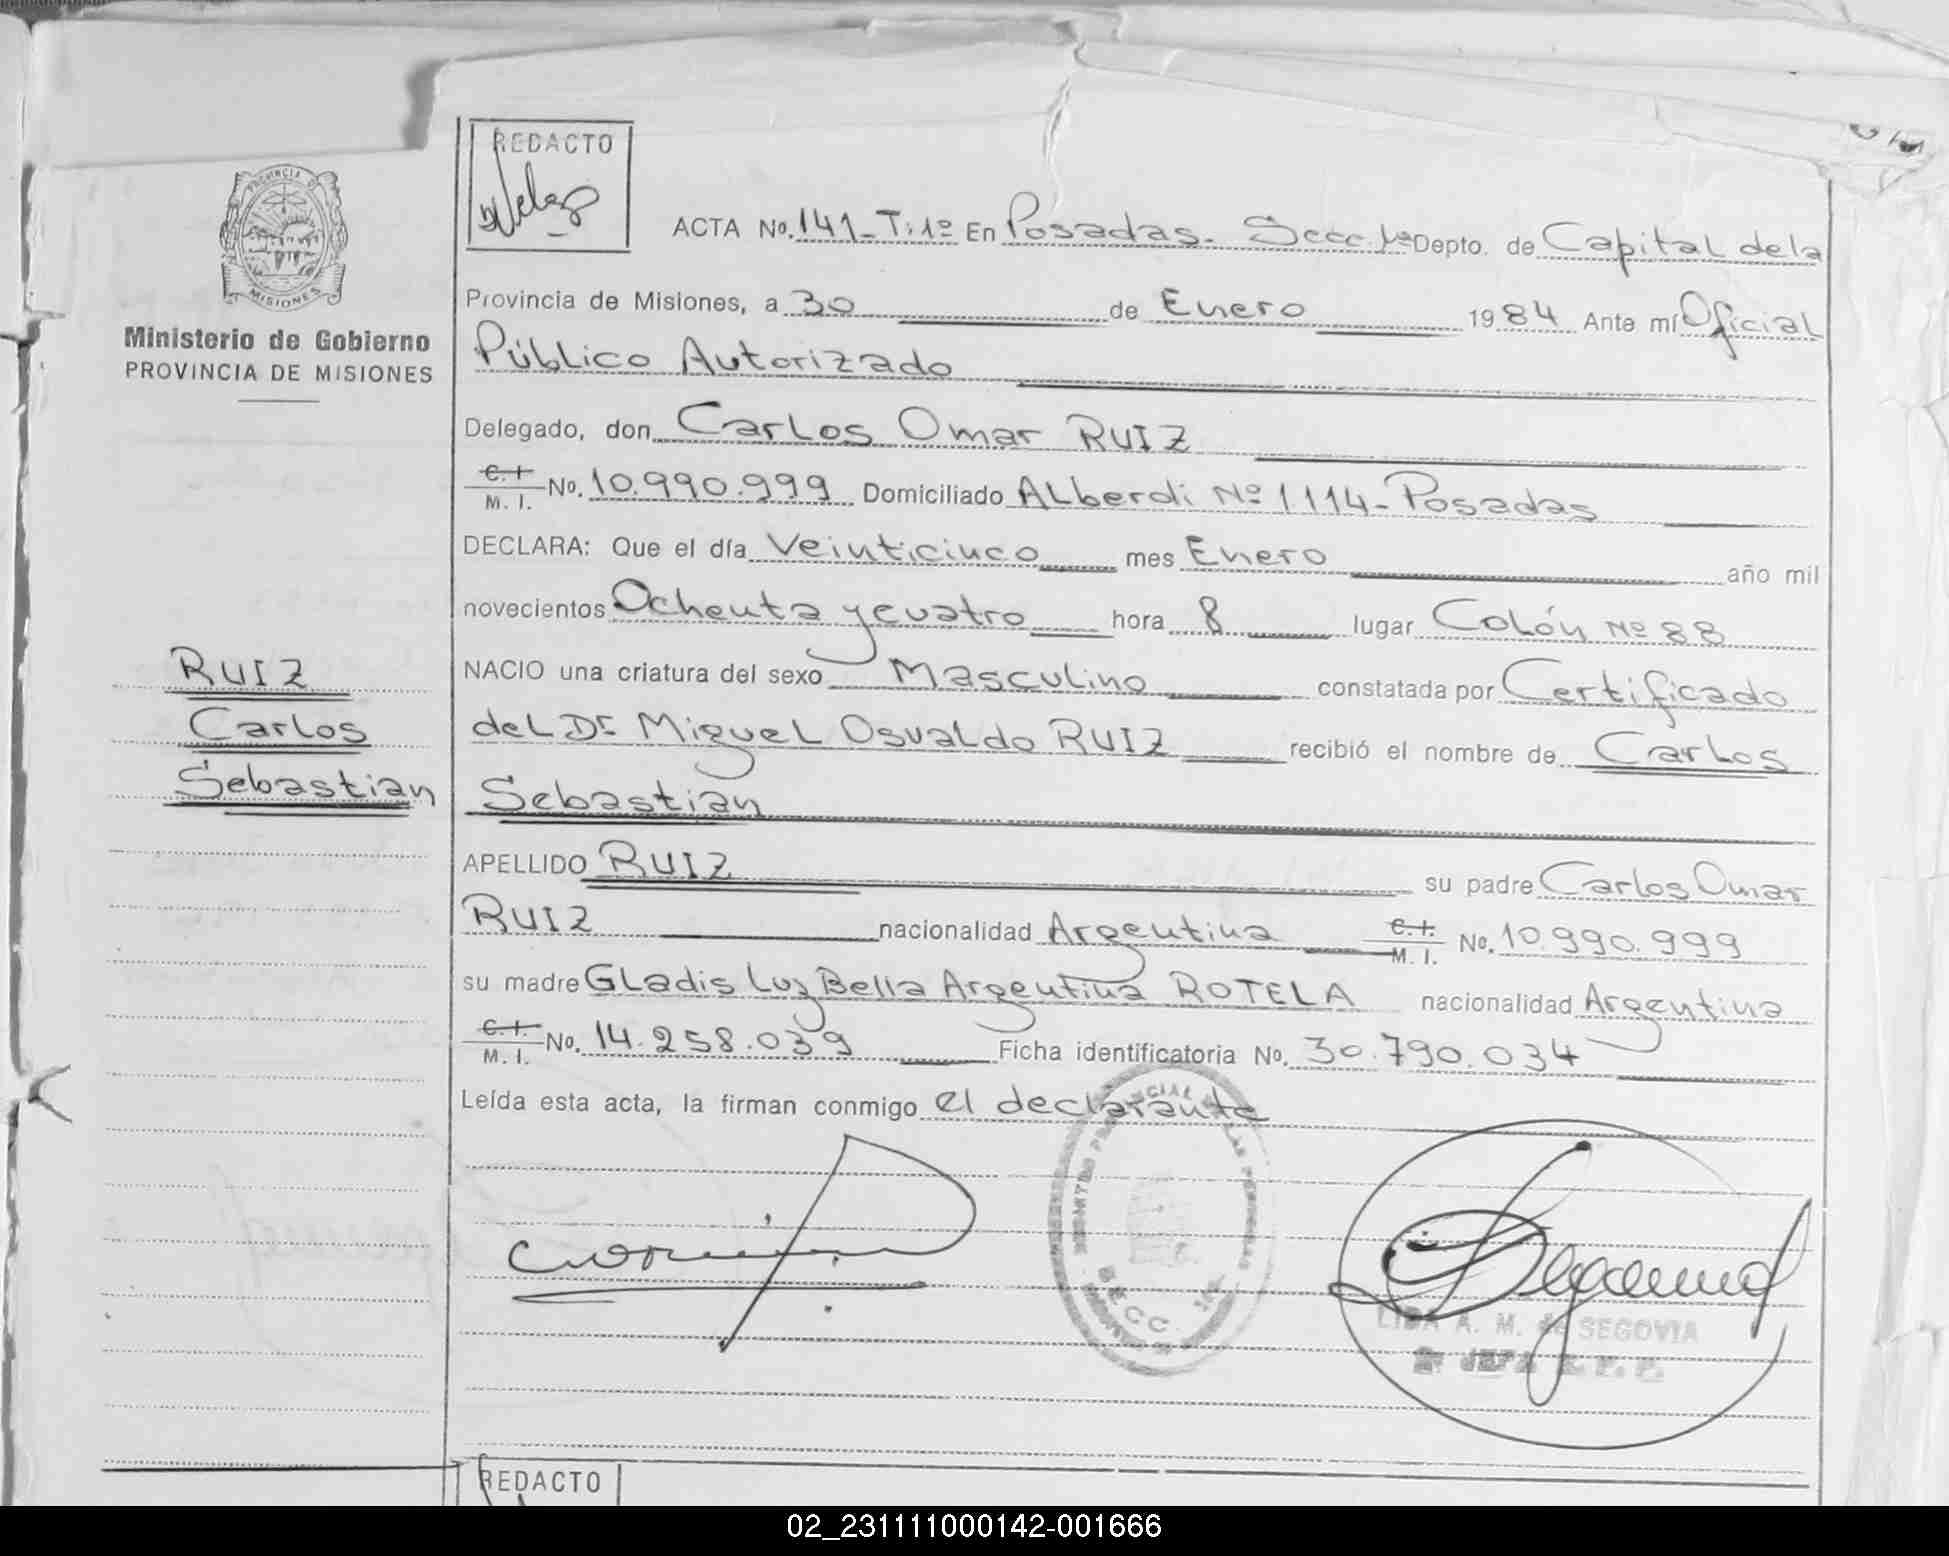 REDACTO
ACTA No. 141_T:1º En Posadas. Secc. 1ª Depto. de Capital de la
PROVINCIA DE
MISIONES
Ministerio de Gobierno
PROVINCIA DE MISIONES
Provincia de Misiones, a 30 de Enero 1984 Ante mí Oficial
Público Autorizado
Delegado, don Carlos Omar RUIZ
C.I.
M. I. No. 10.990.999 Domiciliado ALberdi Nº 1114_Posadas
DECLARA: Que el día Veinticinco mes Enero año mil
novecientos Ochenta y cuatro hora 8 lugar Colón Nº 88
NACIO una criatura del sexo Masculino constatada por Certificado
del Dr Miguel Osvaldo RUIZ recibió el nombre de Carlos
Sebastian
RUIZ
Carlos
Sebastian
APELLIDO RUIZ su padre Carlos Omar
RUIZ nacionalidad Argentina C.I. M. I. No. 10.990.999
su madre Gladis Luz Bella Argentina ROTELA nacionalidad Argentina
C.I.
M. I. No. 14.258.039 Ficha identificatoria No. 30.790.034
Leída esta acta, la firman conmigo el declarante
SECC. 1ra
LIDA A. M. de SEGOVIA
REDACTO
02_231111000142-001666